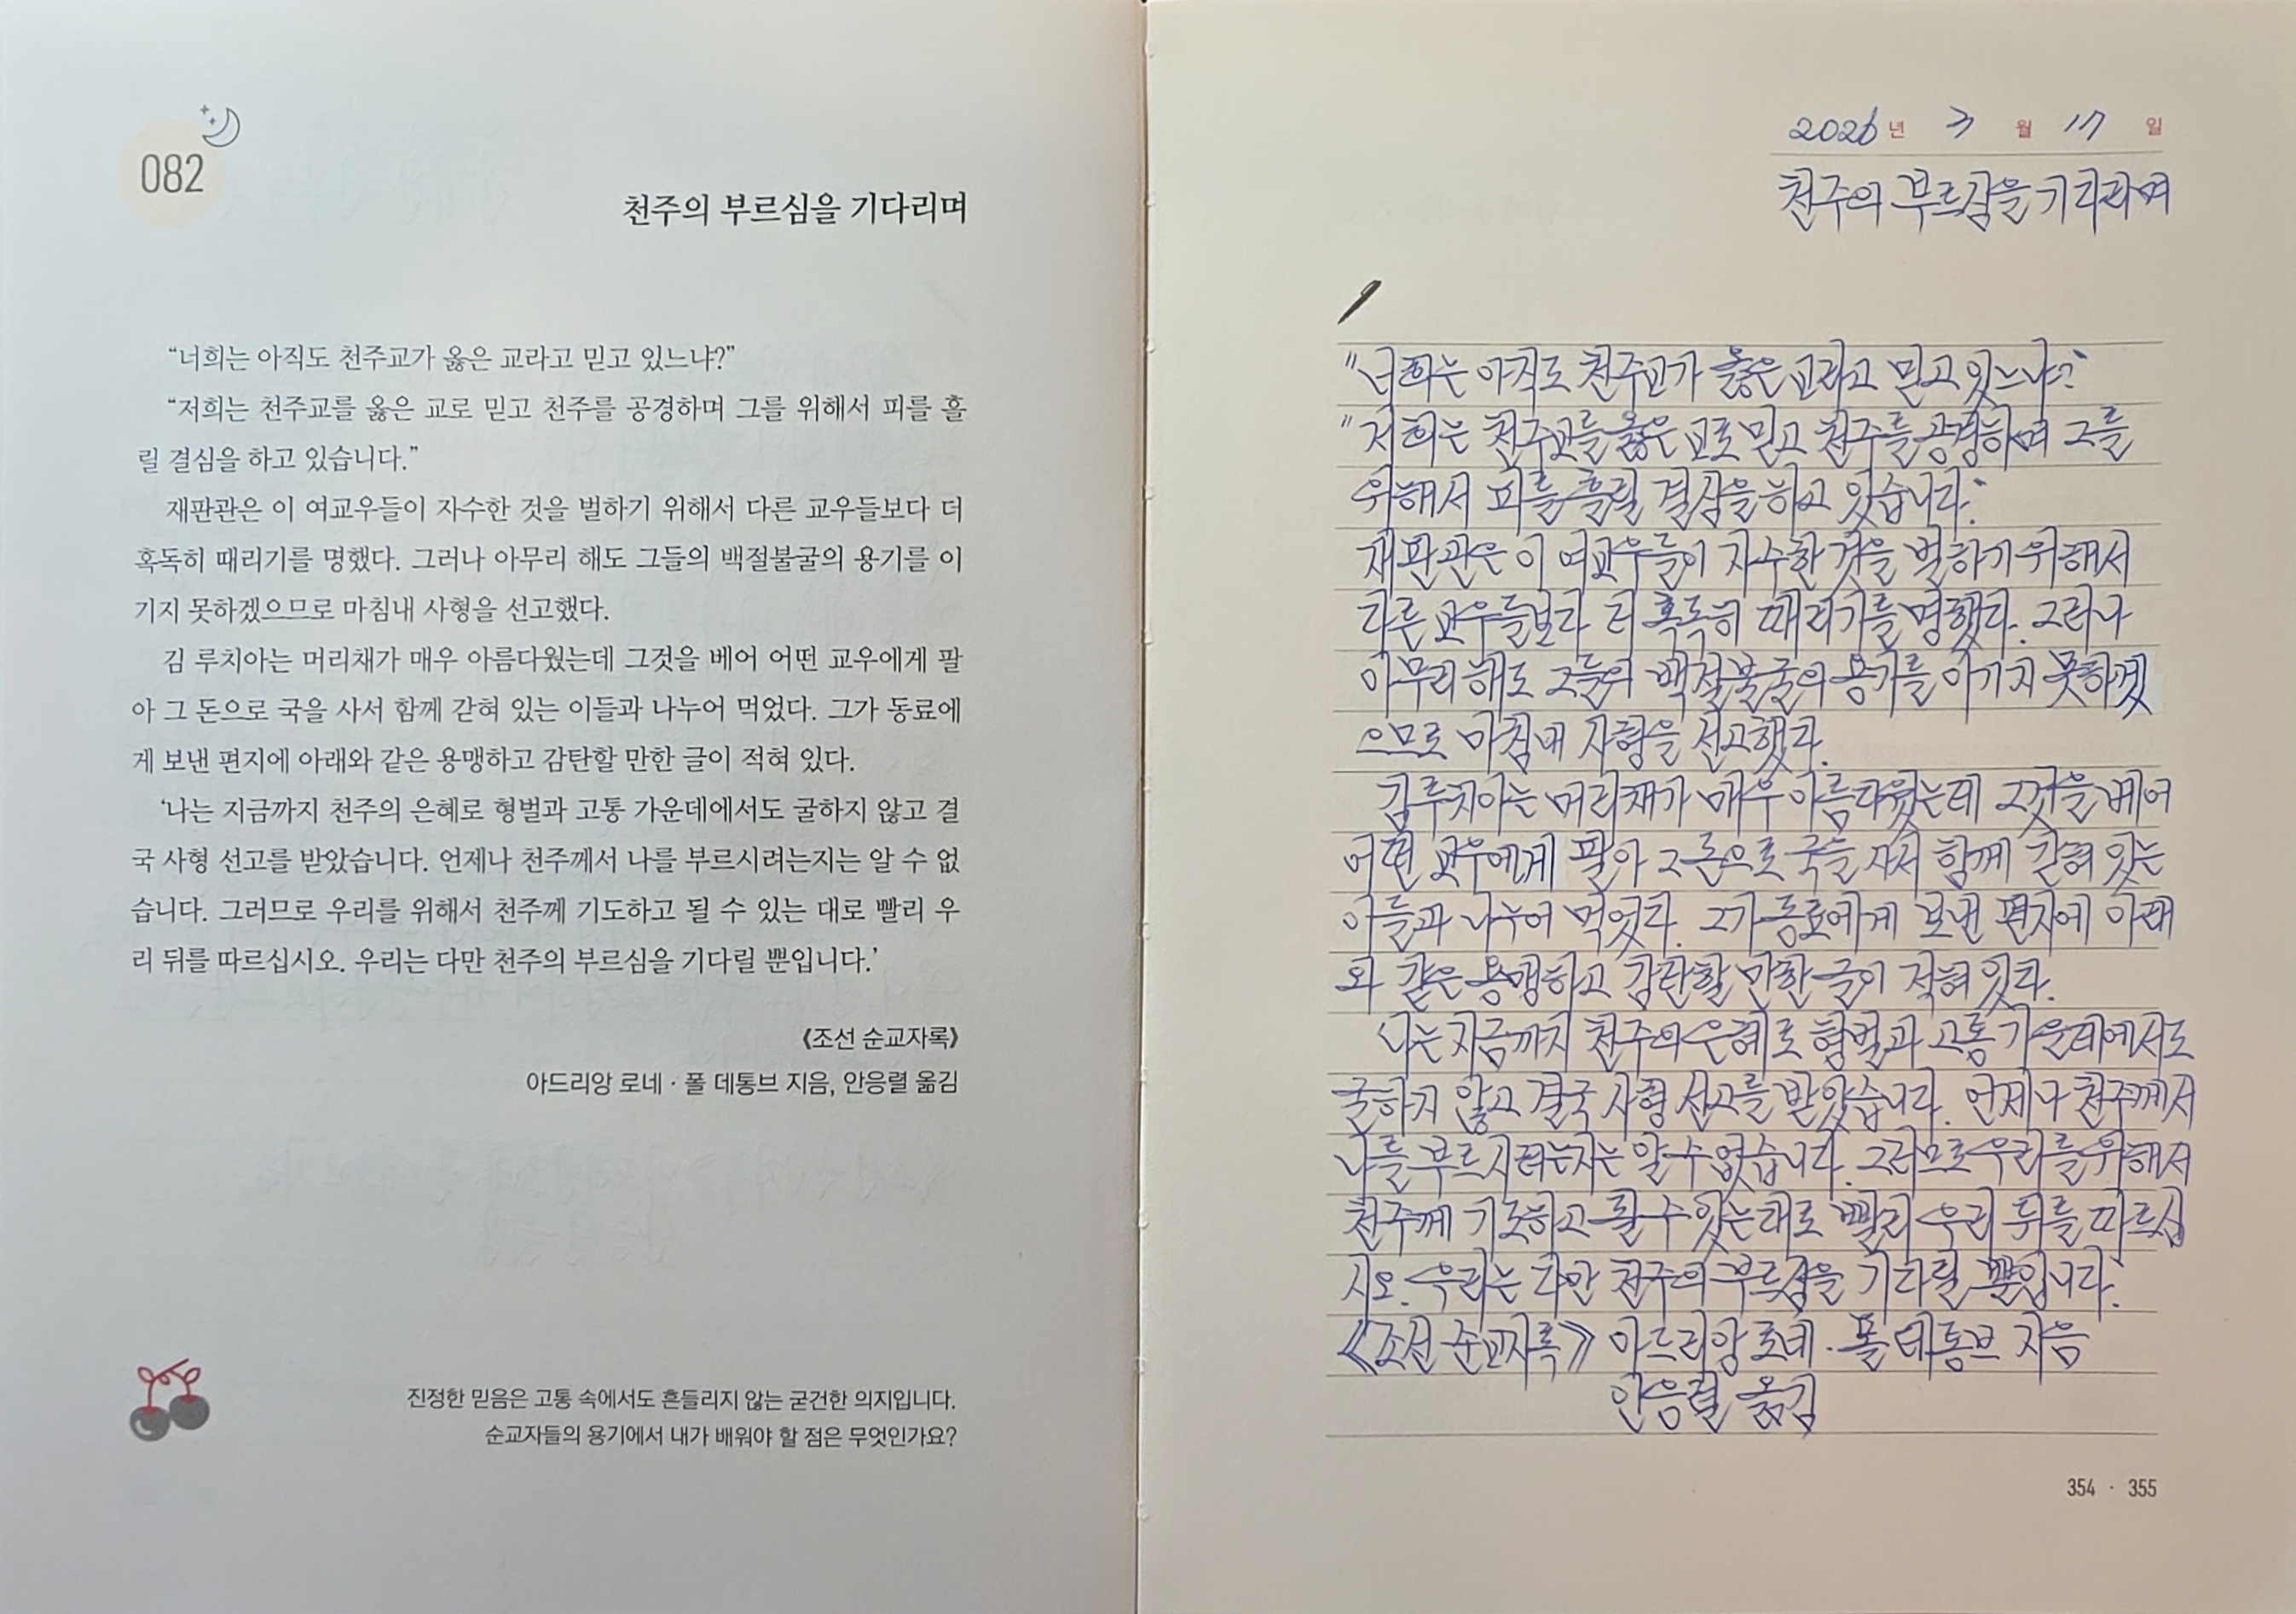 082
천주의 부르심을 기다리며
“너희는 아직도 천주교가 옳은 교라고 믿고 있느냐?”
“저희는 천주교를 옳은 교로 믿고 천주를 공경하며 그를 위해서 피를 흘
릴 결심을 하고 있습니다.”
재판관은 이 여교우들이 자수한 것을 벌하기 위해서 다른 교우들보다 더
혹독히 때리기를 명했다. 그러나 아무리 해도 그들의 백절불굴의 용기를 이
기지 못하겠으므로 마침내 사형을 선고했다.
김 루치아는 머리채가 매우 아름다웠는데 그것을 베어 어떤 교우에게 팔
아 그 돈으로 국을 사서 함께 갇혀 있는 이들과 나누어 먹었다. 그가 동료에
게 보낸 편지에 아래와 같은 용맹하고 감탄할 만한 글이 적혀 있다.
‘나는 지금까지 천주의 은혜로 형벌과 고통 가운데에서도 굴하지 않고 결
국 사형 선고를 받았습니다. 언제나 천주께서 나를 부르시려는지는 알 수 없
습니다. 그러므로 우리를 위해서 천주께 기도하고 될 수 있는 대로 빨리 우
리 뒤를 따르십시오. 우리는 다만 천주의 부르심을 기다릴 뿐입니다.’
《조선 순교자록》
아드리앙 로네 · 폴 데통브 지음, 안응렬 옮김
진정한 믿음은 고통 속에서도 흔들리지 않는 굳건한 의지입니다.
순교자들의 용기에서 내가 배워야 할 점은 무엇인가요?
2026년 3월 17일
천주의 부르심을 기다리며
"너희는 아직도 천주교가 옳은 교라고 믿고 있느냐?"
"저희는 천주교를 옳은 교로 믿고 천주를 공경하며 그를
위해서 피를 흘릴 결심을 하고 있습니다."
재판관은 이 여교우들이 자수한 것을 벌하기 위해서
다른 교우들보다 더 혹독히 때리기를 명했다. 그러나
아무리 해도 그들의 백절불굴의 용기를 이기지 못하겠
으므로 마침내 사형을 선고했다.
김루치아는 머리채가 매우 아름다웠는데 그것을 베어
어떤 교우에게 팔아 그 돈으로 국을 사서 함께 갇혀 있는
이들과 나누어 먹었다. 그가 동료에게 보낸 편지에 아래
와 같은 용맹하고 감탄할 만한 글이 적혀 있다.
나는 지금까지 천주의 은혜로 형벌과 고통 가운데에서도
굴하지 않고 결국 사형 선고를 받았습니다. 언제나 천주께서
나를 부르시려는지는 알 수 없습니다. 그러므로 우리를 위해서
천주께 기도하고 될 수 있는 대로 빨리 우리 뒤를 따르십
시오. 우리는 다만 천주의 부르심을 기다릴 뿐입니다.
《조선 순교자록》 아드리앙 로네 · 폴 데통브 지음
안응렬 옮김
354 · 355